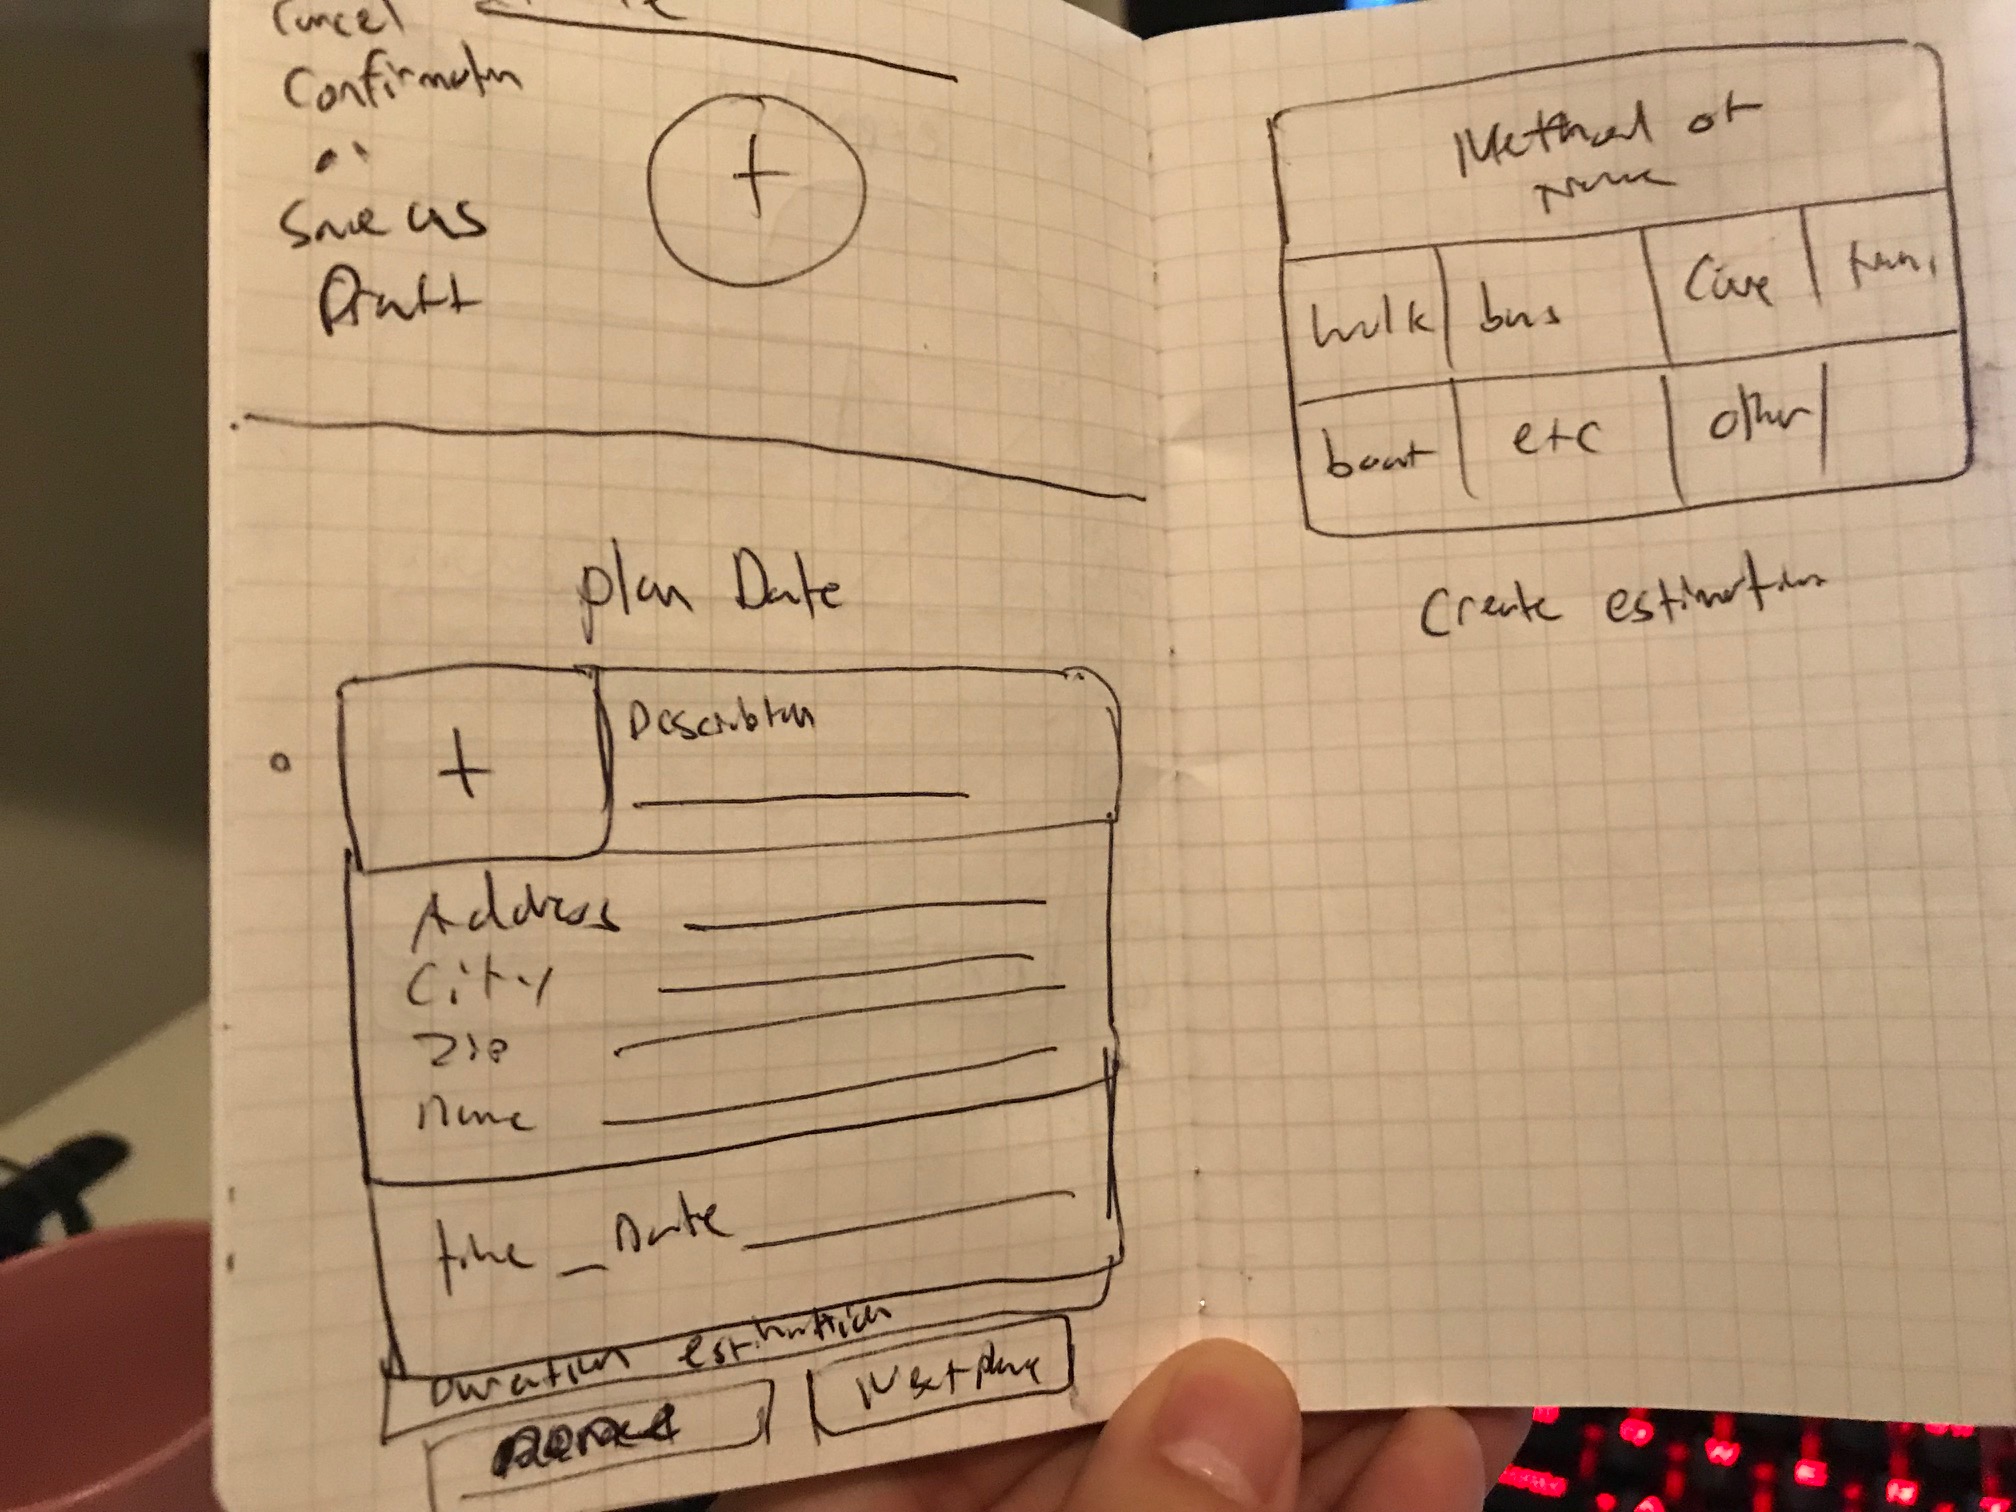 Cancel
Confirmation
or
Save as
Draft
+
plan Date
+
Description
Address
City
Zip
Name
time _ Date
Duration estimation
Next place
Method of
walk bus Cave
boat etc other
Create estimation